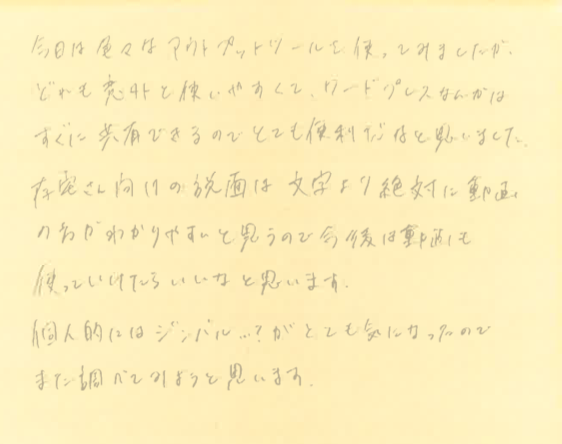 今日は色々なアウトプットツールを使ってみましたが、
どれも意外と使いやすくて、ワードプレスなんかは
すぐに共有できるのでとても便利だなと思いました。
お客さん向けの説面は文字より絶対に動画
の方がわかりやすいと思うので今後は動画も
使っていけたらいいなと思います。
個人的にはジンバル…？がとても気になったので
また調べてみようと思います。